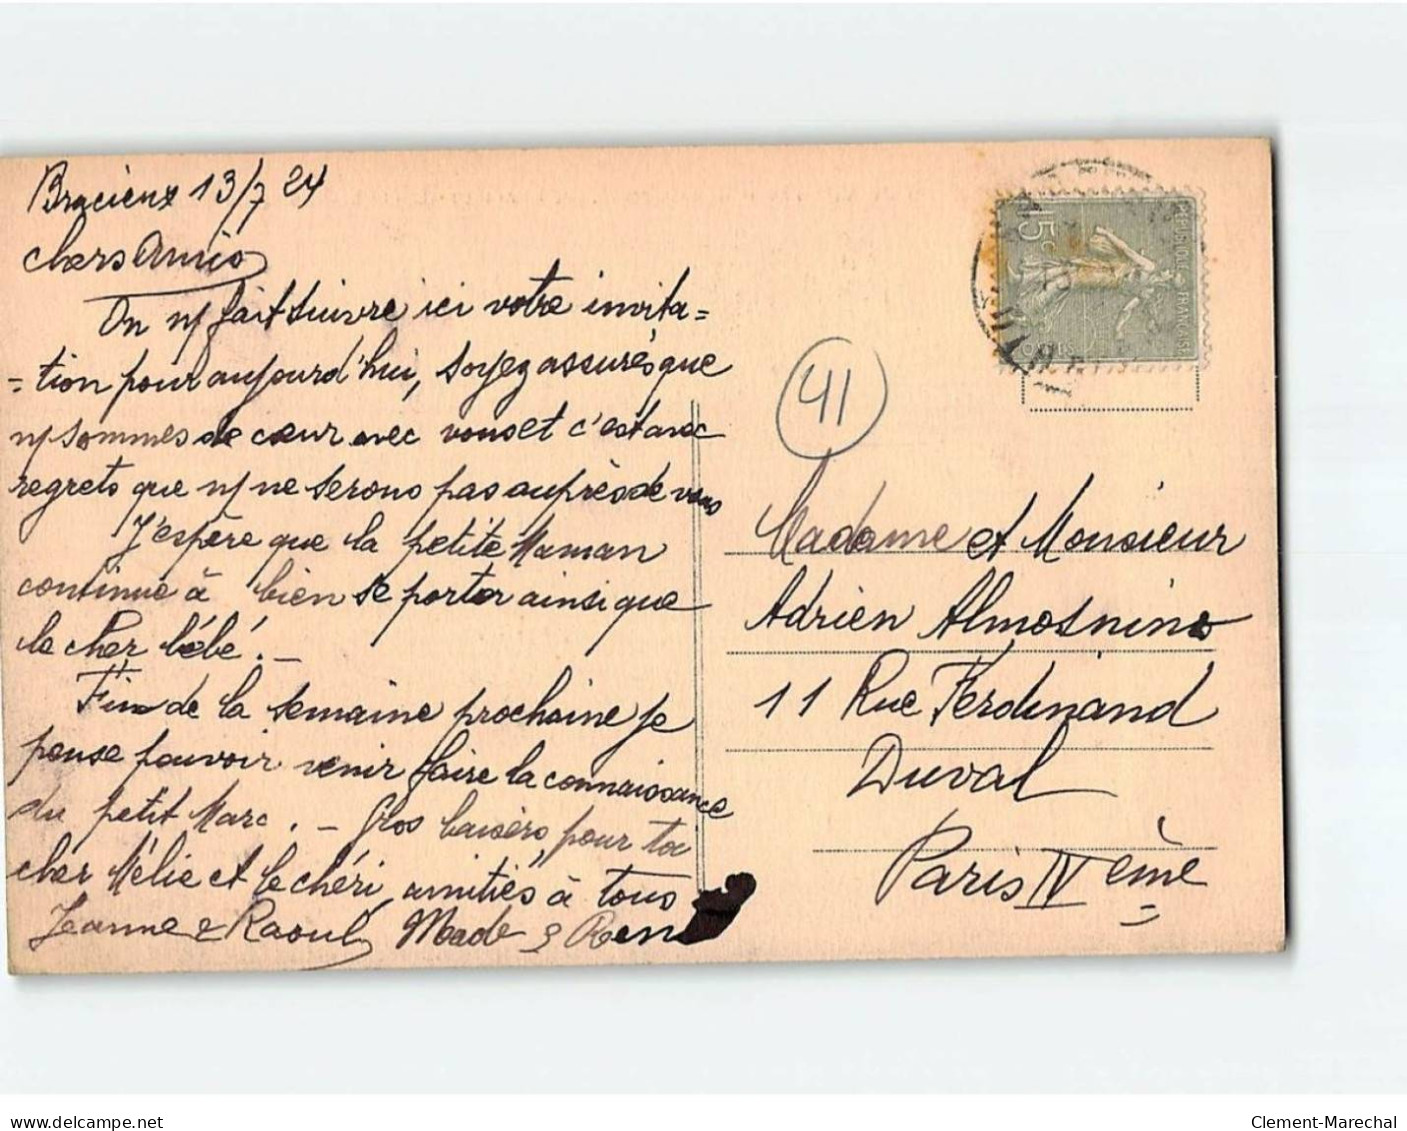 Bracieux 13/7 24
chers Amis
On n/ fait suivre ici votre invita=
=tion pour aujourd'hui, soyez assurés que
n/ sommes de cœur avec vous et c'est avec
regrets que n/ ne serons pas auprès de vous
J'espère que la petite Maman
continue à bien se porter ainsi que
le cher bébé. _
Fin de la semaine prochaine je
pense pouvoir venir faire la connaissance
du petit Marc. _ Gros baisers, pour ta
cher Mélie et le chéri, amitiés à tous
Jeanne & Raoul, Made & René
REPUBLIQUE FRANCAISE
15c
POSTES
41
Madame et Monsieur
Adrien Almosnino
11 Rue Ferdinand
Duval
Paris IVème
delcampe.net
Clement-Marechal